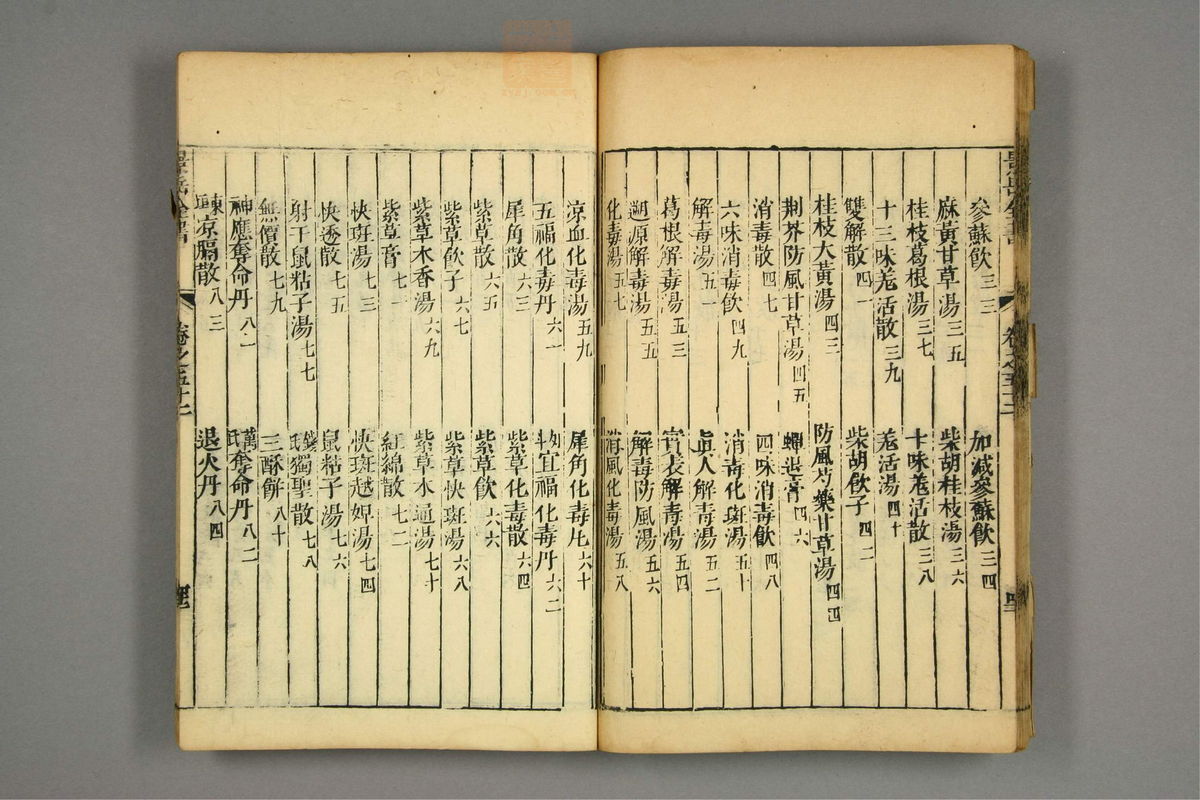 參蘇飲三三 加減參蘇飲三四
麻黃甘草湯三五 柴胡桂枝湯三六
桂枝葛根湯三七 十味羗活散三八
十三味羗活散三九 羗活湯四十
雙解散四一 柴胡飲子四二
桂枝大黃湯四三 防風芍藥甘草湯四四
荆芥防風甘草湯四五 蟬退膏四六
消毒散四七 四味消毒飲四八
六味消毒飲四九 消毒化斑湯五十
解毒湯五一 眞人解毒湯五二
葛根解毒湯五三 實表解毒湯五四
遡源解毒湯五五 解毒防風湯五六
化毒湯五七 消風化毒湯五八
凉血化毒湯五九 犀角化毒丸六十
五福化毒丹六一 㓜宜福化毒丹六二
犀角散六三 紫草化毒散六四
紫草散六五 紫草飲六六
紫草飲子六七 紫草快斑湯六八
紫草木香湯六九 紫草木通湯七十
紫草膏七一 紅綿散七二
快斑湯七三 快斑越婢湯七四
快透散七五 鼠粘子湯七六
射干鼠粘子湯七七 錢氏獨聖散七八
無價散七九 三酥餅八十
神應奪命丹八一 萬氏奪命丹八二
東垣凉膈散八三 退火丹八四
景岳全書 卷之五十二